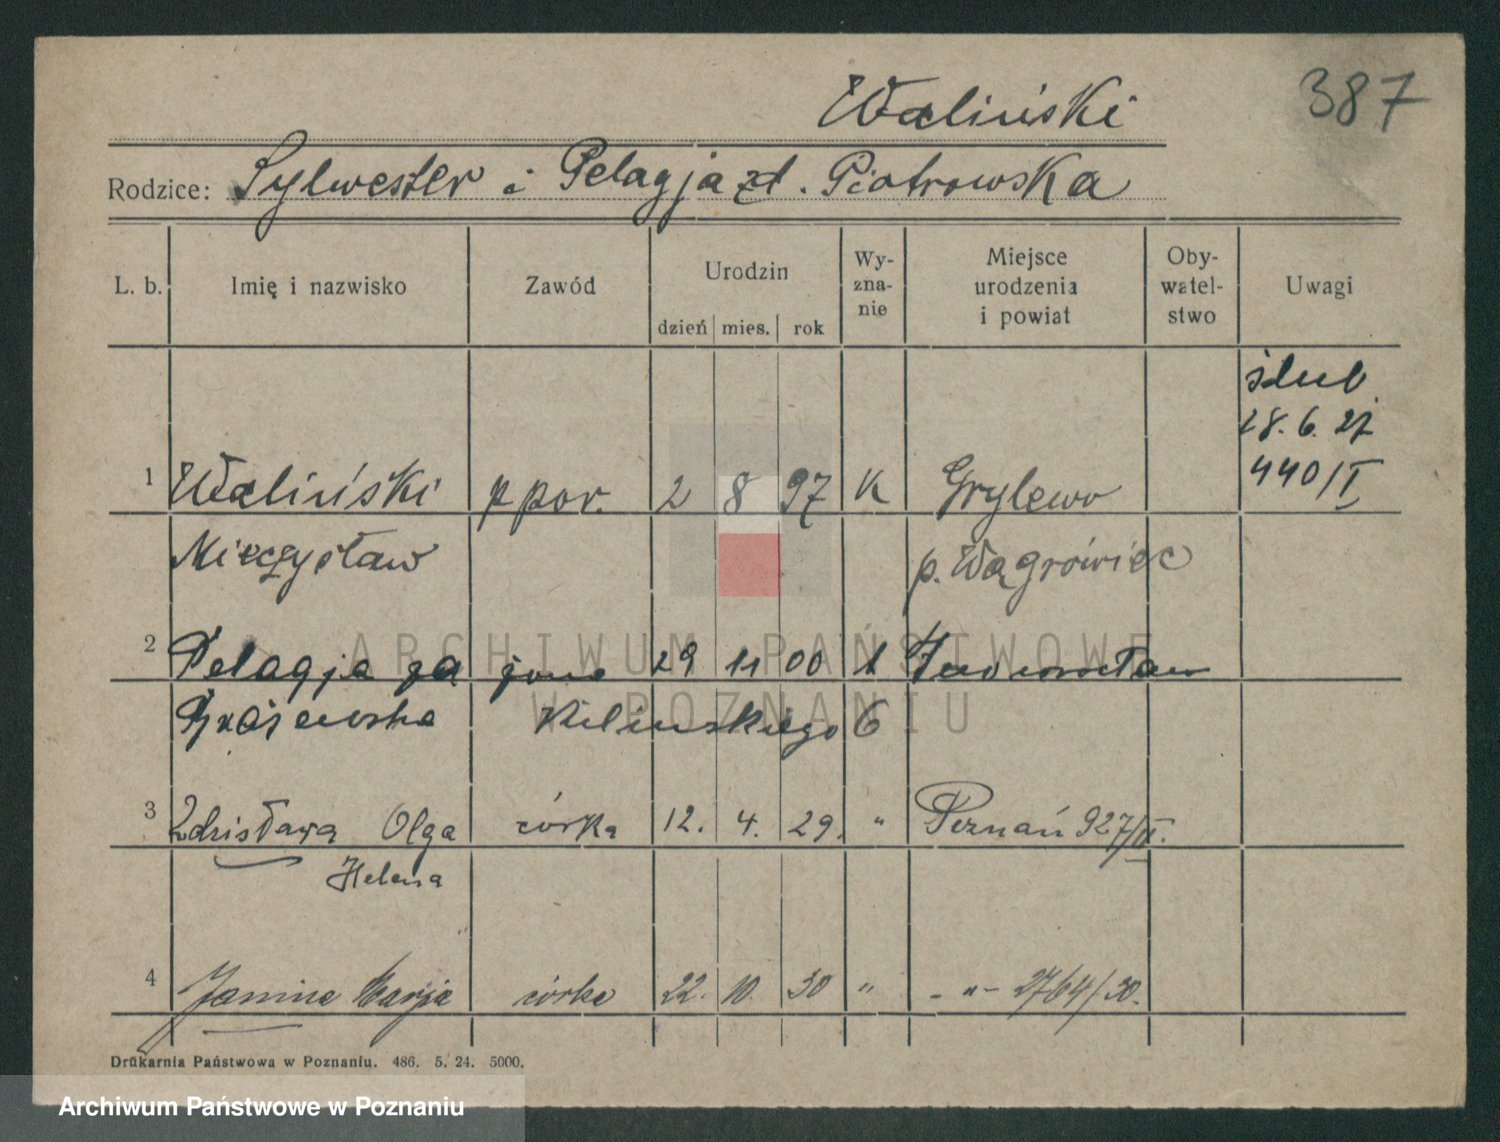 387
Waliński
Rodzice: Sylwester i Pelagja zd. Piotrowska
L. b. Imię i nazwisko Zawód Urodzin dzień mies. rok Wy-zna-nie Miejsce urodzenia i powiat Oby-watel-stwo Uwagi
ślub
28. 6. 27
440/I
1 Waliński ppor. 2 8 97 K Grylewo
Mieczysław p. Wągrówiec
2 Pelagja za żona 29 11 00 k Inowrocław
Kilinskiego 6
3 Zdzisława Olga córka 12. 4. 29. " Poznań 927/II.
Helena
4 Janina Marja córka 22. 10. 30 " - " - 2764/30.
Drukarnia Państwowa w Poznaniu. 486. 5. 24. 5000.
ARCHIWUM PAŃSTWOWE
W POZNANIU
Archiwum Państwowe w Poznaniu